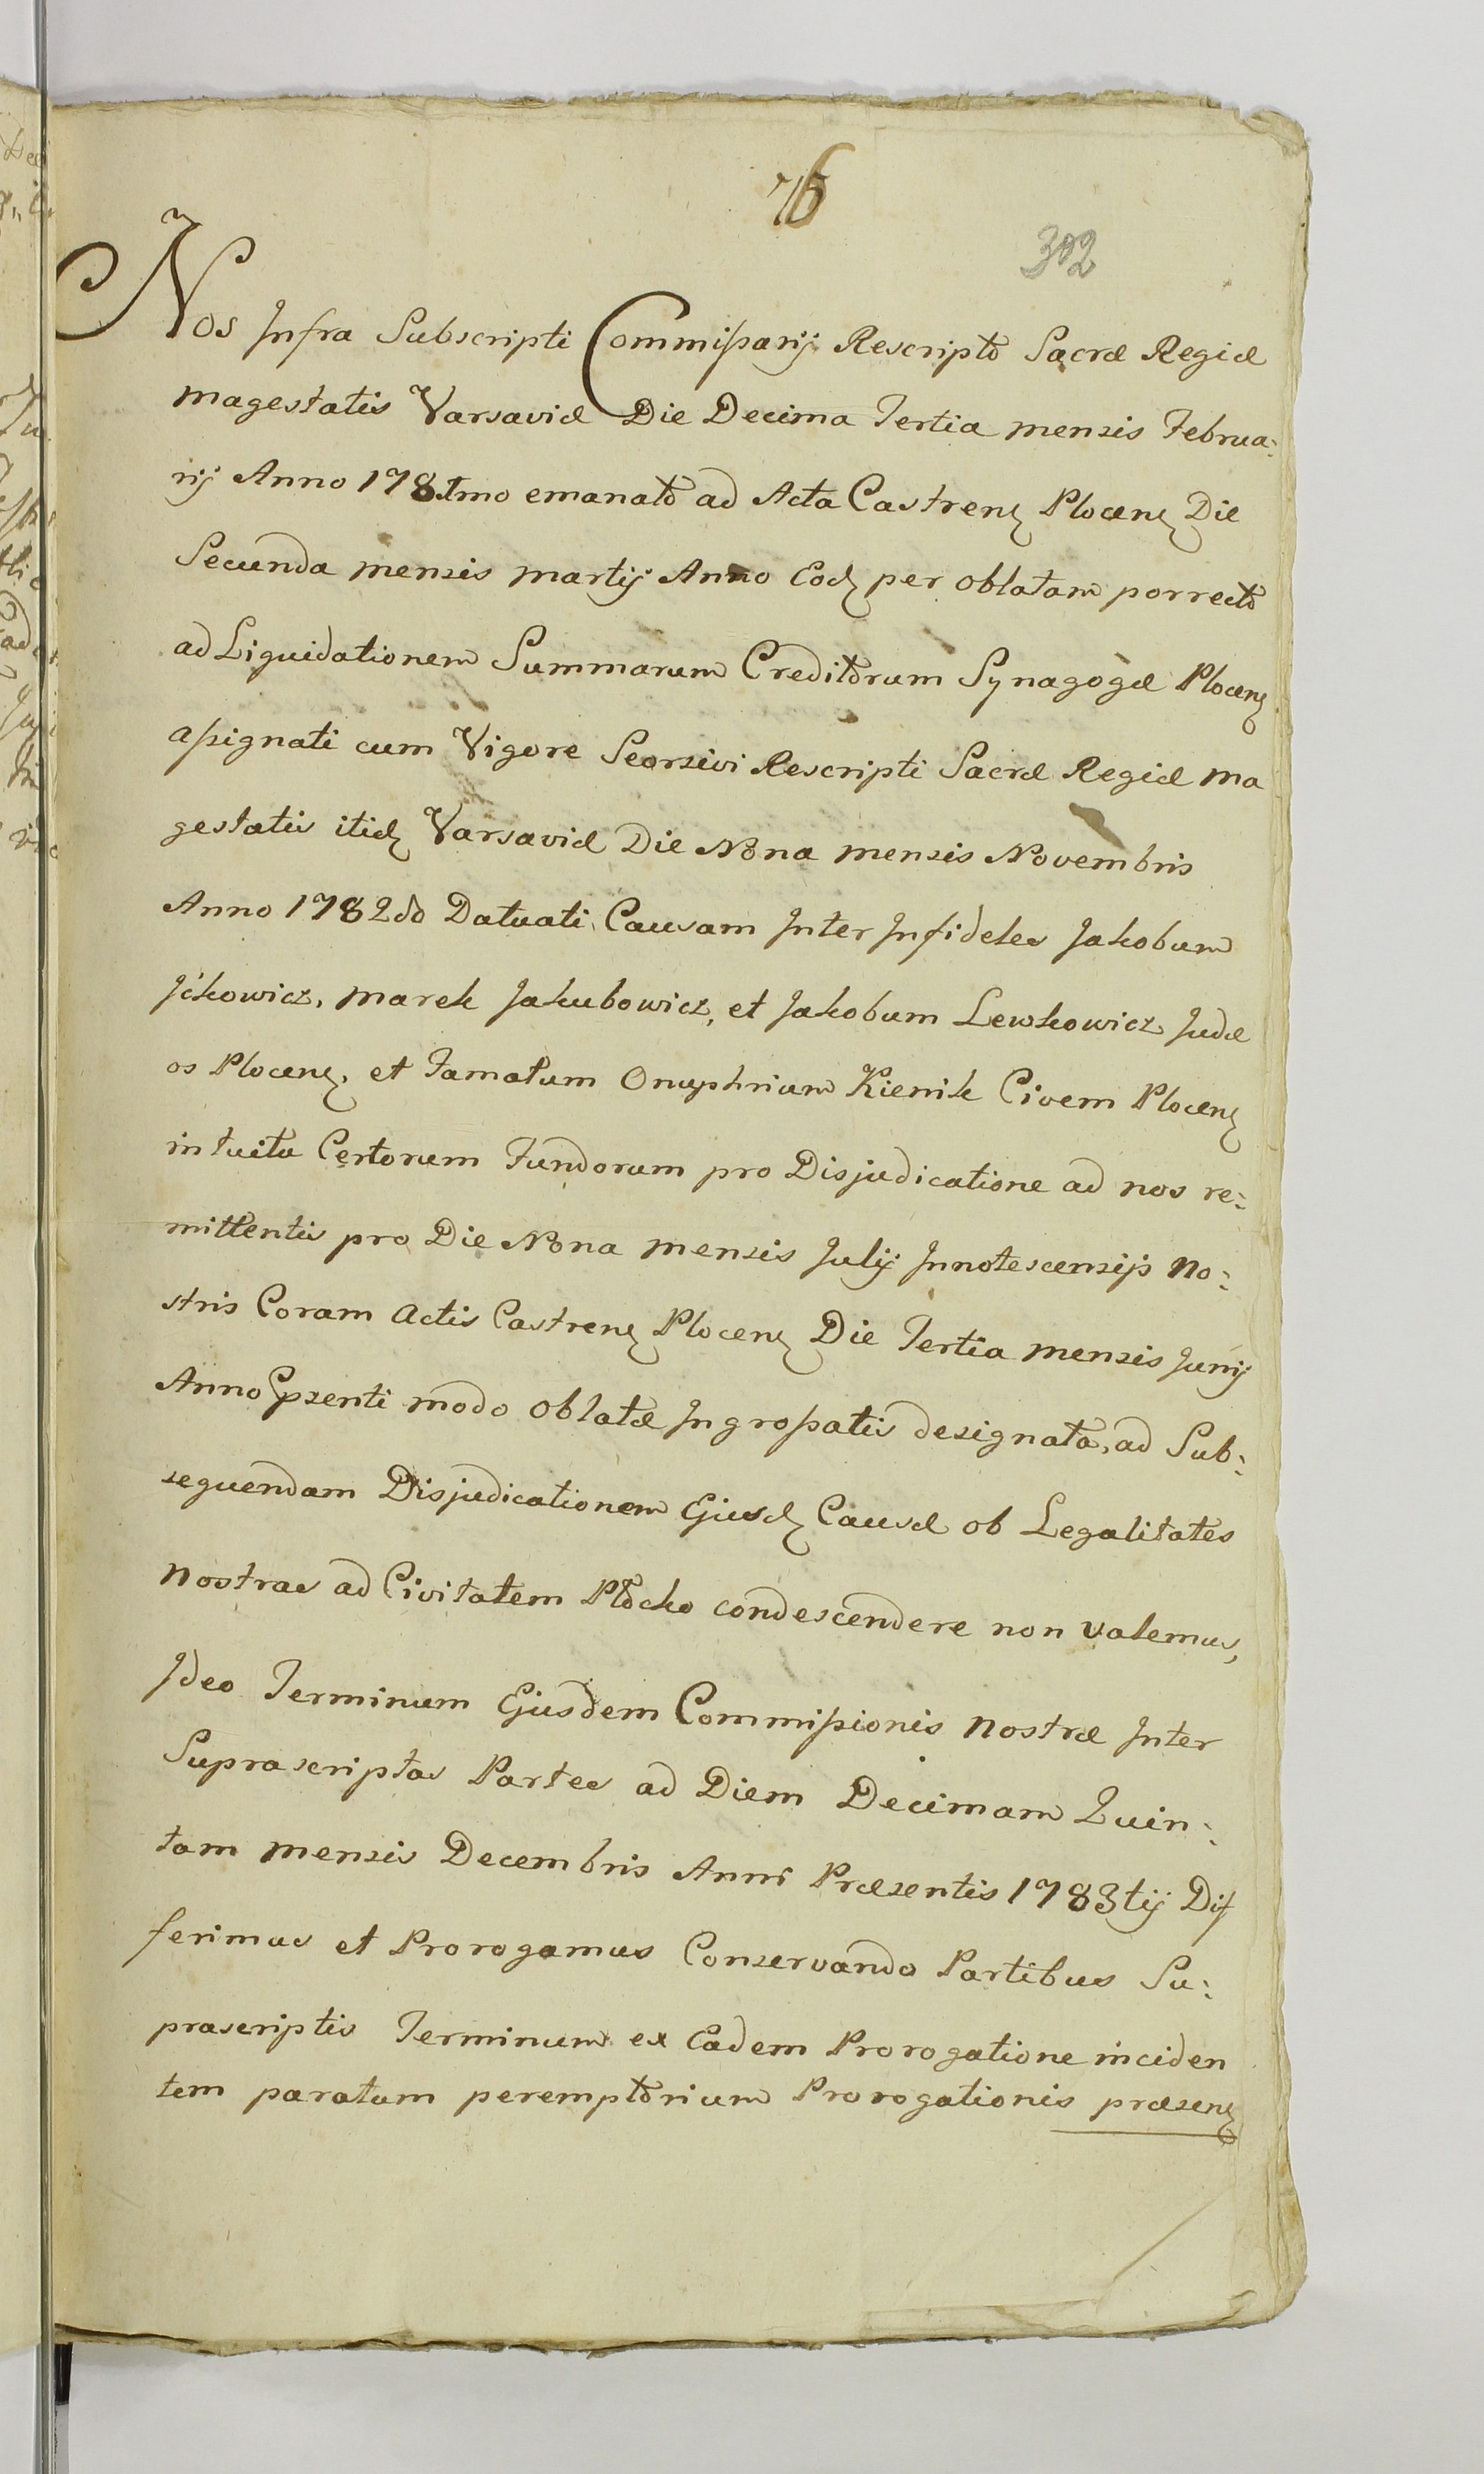 76
302
Nos Infra Subscripti Commissarij Rescripto Sacræ Regiæ
Magestatis Varsaviæ Die Decima Tertia mensis Februa:
rij Anno 1781mo emanato ad Acta Castrenẹ Plocenẹ Die
Secunda mensis Martij Anno Eodẹ per oblatam porrecto
ad Liquidationem Summarum Creditorum Synagogæ Plocenẹ
assignati cum Vigore Seorsivi Rescripti Sacræ Regiæ Ma
gestatis itidẹ Varsaviæ Die Nona mensis Novembris
Anno 1782do Datuati, Causam Inter Infideles Jakobum
Jckowicz, Marek Jakubowicz, et Jakobum Lewkowicz Judæ
os Plocenẹ, et Famatum Onuphrium Kienik Civem Plocenẹ
intuitu Certorum Fundorum pro Disjudicatione ad nos re:
mittentis pro Die Nona Mensis Julij Innotescensijs No:
stris Coram Actis Castrenẹ Plocenẹ Die Tertia mensis Junij
Anno Psenti modo Oblatæ Ingrossatis designata, ad Sub:
sequendam Disjudicationem Ejusdẹ Causæ ob Legalitates
nostras ad Civitatem Plocko condescendere non valemus,
Ideo Terminum Ejusdem Commissionis Nostræ Inter
Suprascriptas Partes ad Diem Decimam Quin:
tam Mensis Decembris Anni Præsentis 1783tij Dif
ferimus et Prorogamus Conservando Partibus Su:
prascriptis Terminum ex Eadem Prorogatione inciden
tem paratum peremptorium Prorogationis præsenẹ